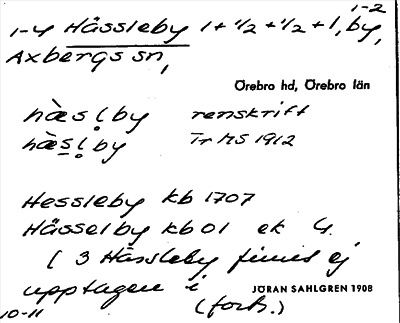 1-2
1-4 Hässleby 1+1/2+1/2+1, by,
Axbergs sn,
Örebro hd, Örebro län
hæ̀sḷby renskrift
hæ̀s̠ḷby Tr MS 1912
Hessleby kb 1707
Hässelby kb 01 ek 4.
( 3 Hässleby finnes ej
upptagen i JÖRAN SAHLGREN 1908
10-11 (forts.)